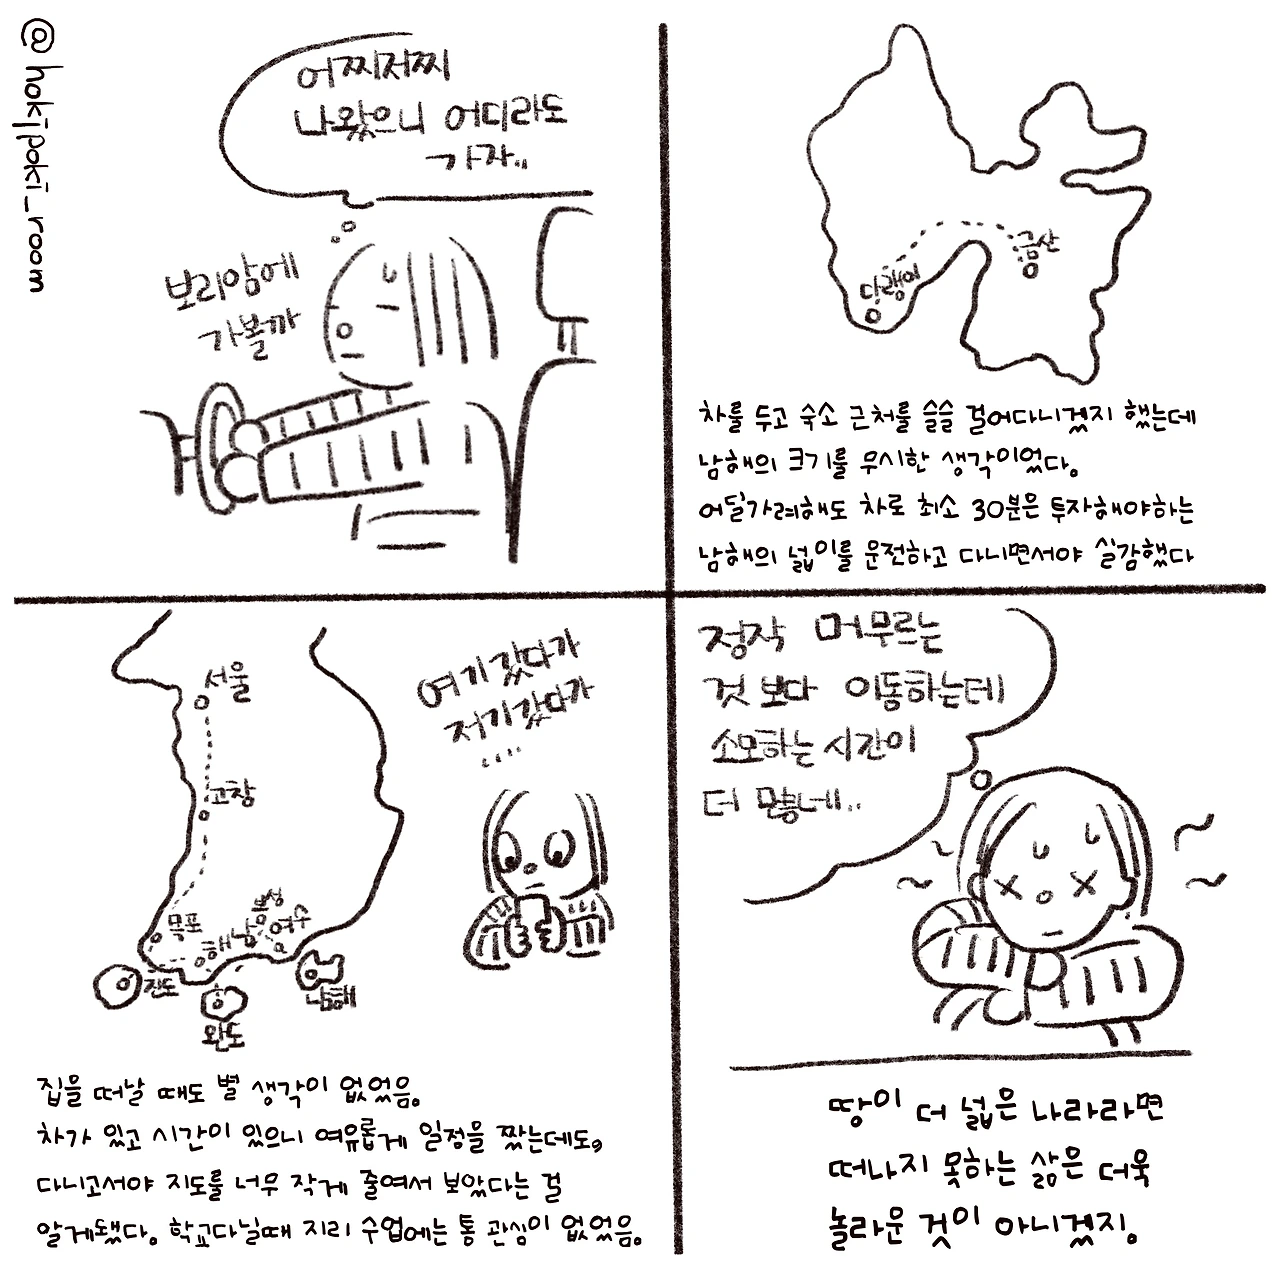 @hokipoki_room
어찌저찌
나왔으니 어디라도
가자..
보리암에
가볼까
금산
다랭이
차를 두고 숙소 근처를 슬슬 걸어다니겠지 했는데
남해의 크기를 무시한 생각이었다.
어딜가려해도 차로 최소 30분은 투자해야하는
남해의 넓이를 운전하고 다니면서야 실감했다
서울
고창
목포
해남
보성
여수
진도
완도
남해
여기갔다가
저기갔다가
....
집을 떠날 때도 별 생각이 없었음.
차가 있고 시간이 있으니 여유롭게 일정을 짰는데도,
다니고서야 지도를 너무 작게 줄여서 보았다는 걸
알게됐다. 학교다닐때 지리 수업에는 통 관심이 없었음.
정작 머무르는
것 보다 이동하는데
소모하는 시간이
더 많네..
땅이 더 넓은 나라라면
떠나지 못하는 삶은 더욱
놀라운 것이 아니겠지.